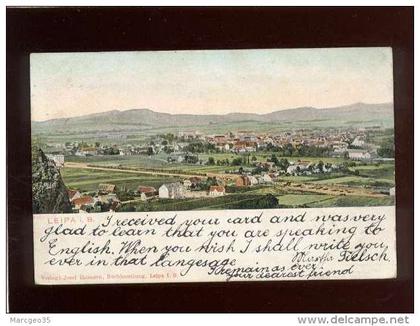 LEIPA i. B.
I received your card and was very
glad to learn that you are speaking to
English. When you wish I shall write you
ever in that langesage
I remain as ever.
your dearest friend
Verlag: Josef Hamann, Buchhandlung, Leipa i. B.
© www.delcampe.net
Owner: Marc-GG 35